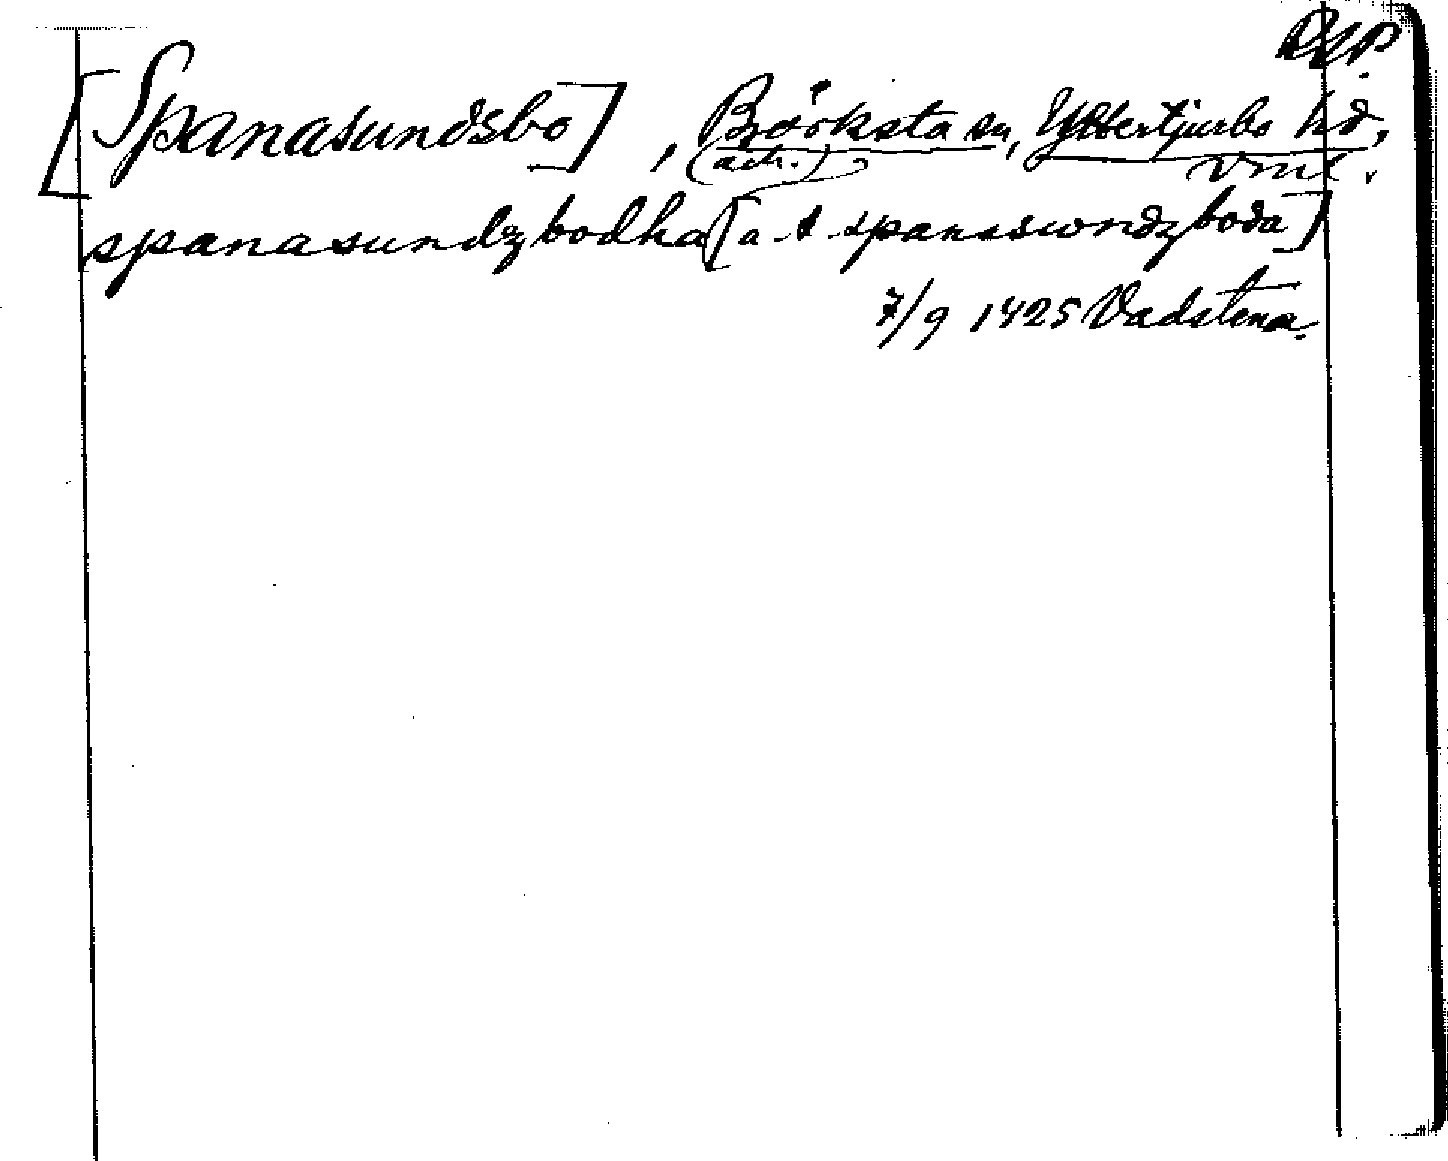 RAP.
[Spanasundsbo], Björksta sn, Yttertjurbo hd,
(adr.) Vml.
spanasundzbodha [a t. spanaswndzboda]
7/9 1425 Vadstena.